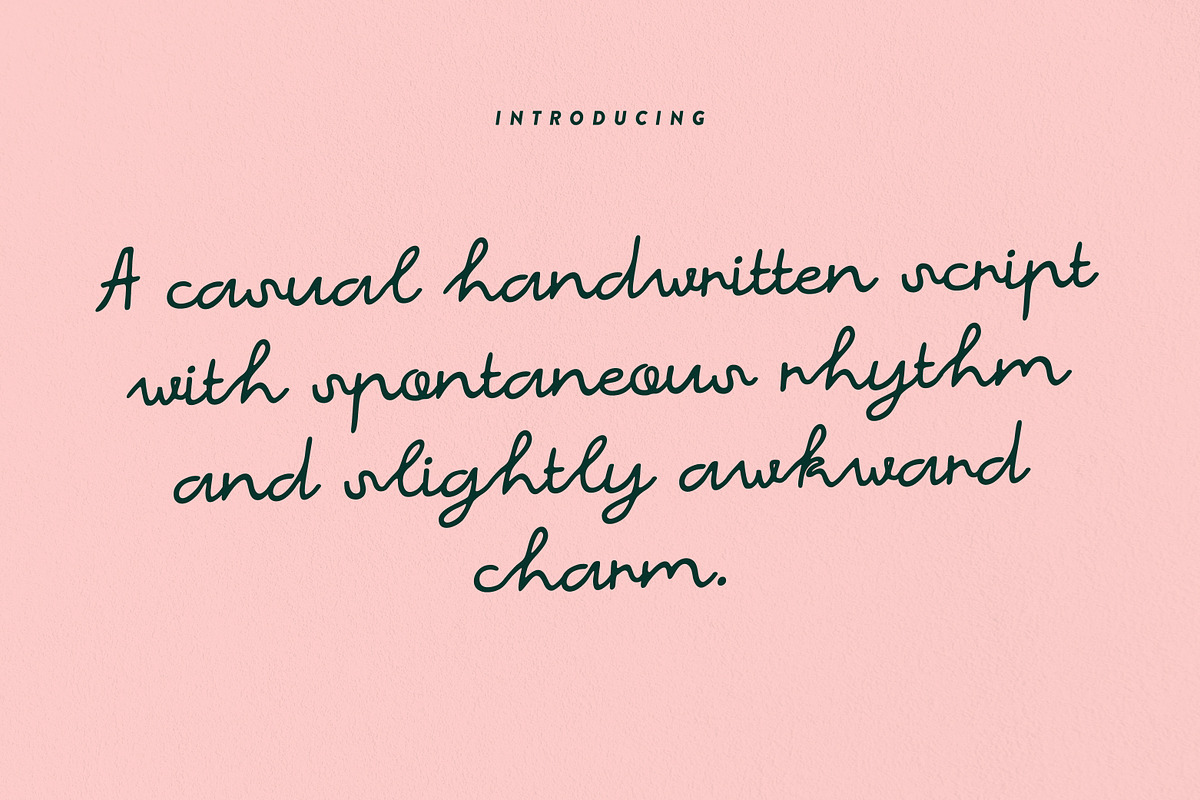 INTRODUCING
A casual handwritten script
with spontaneous rhythm
and slightly awkward
charm.